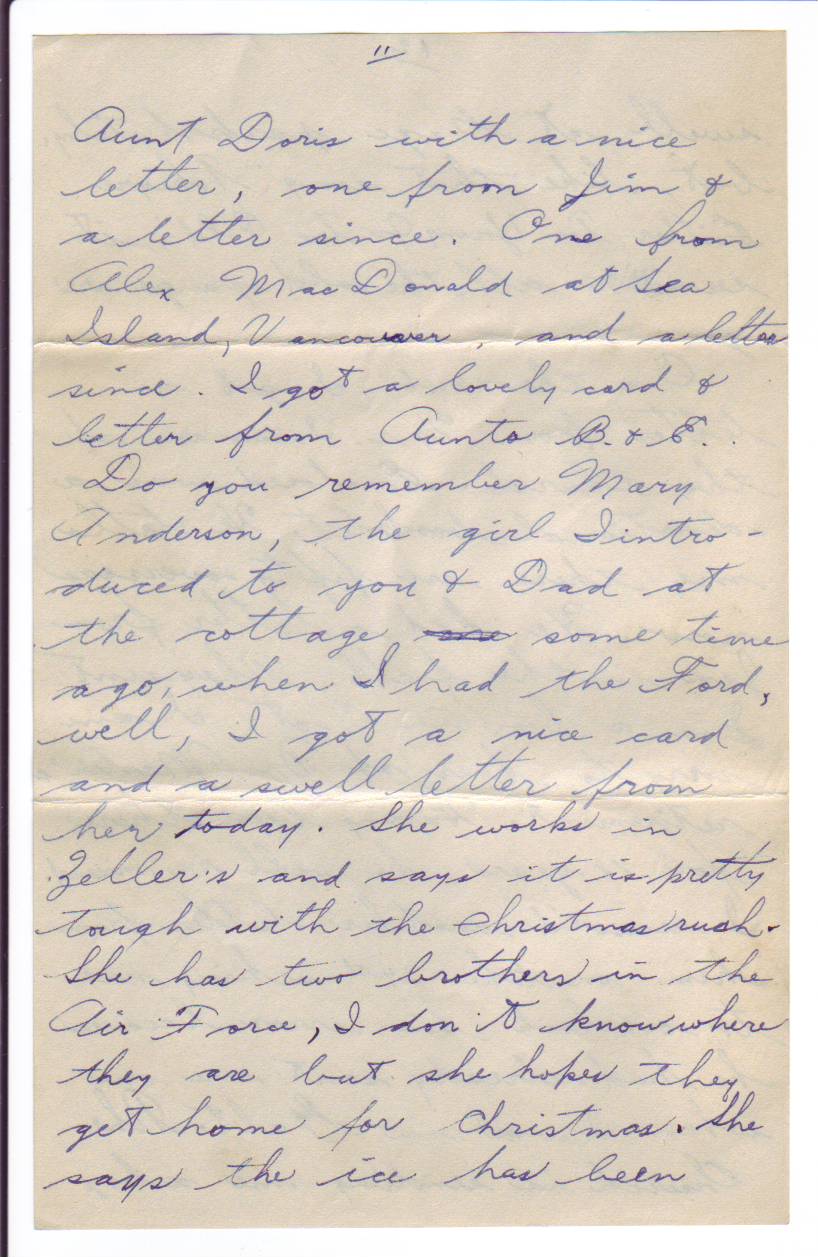 11
Aunt Doris with a nice
letter, one from Jim &
a letter since. One from
Alex MacDonald at Sea
Island, Vancouver, and a letter
since. I got a lovely card &
letter from Aunts B. & E.
Do you remember Mary
Anderson, the girl I intro-
duced to you & Dad at
the cottage one some time
ago, when I had the Ford,
well, I got a nice card
and a swell letter from
her today. She works in
Zeller's and says it is pretty
tough with the Christmas rush.
She has two brothers in the
Air Force, I don't know where
they are but she hopes they
get home for Christmas. She
says the ice has been